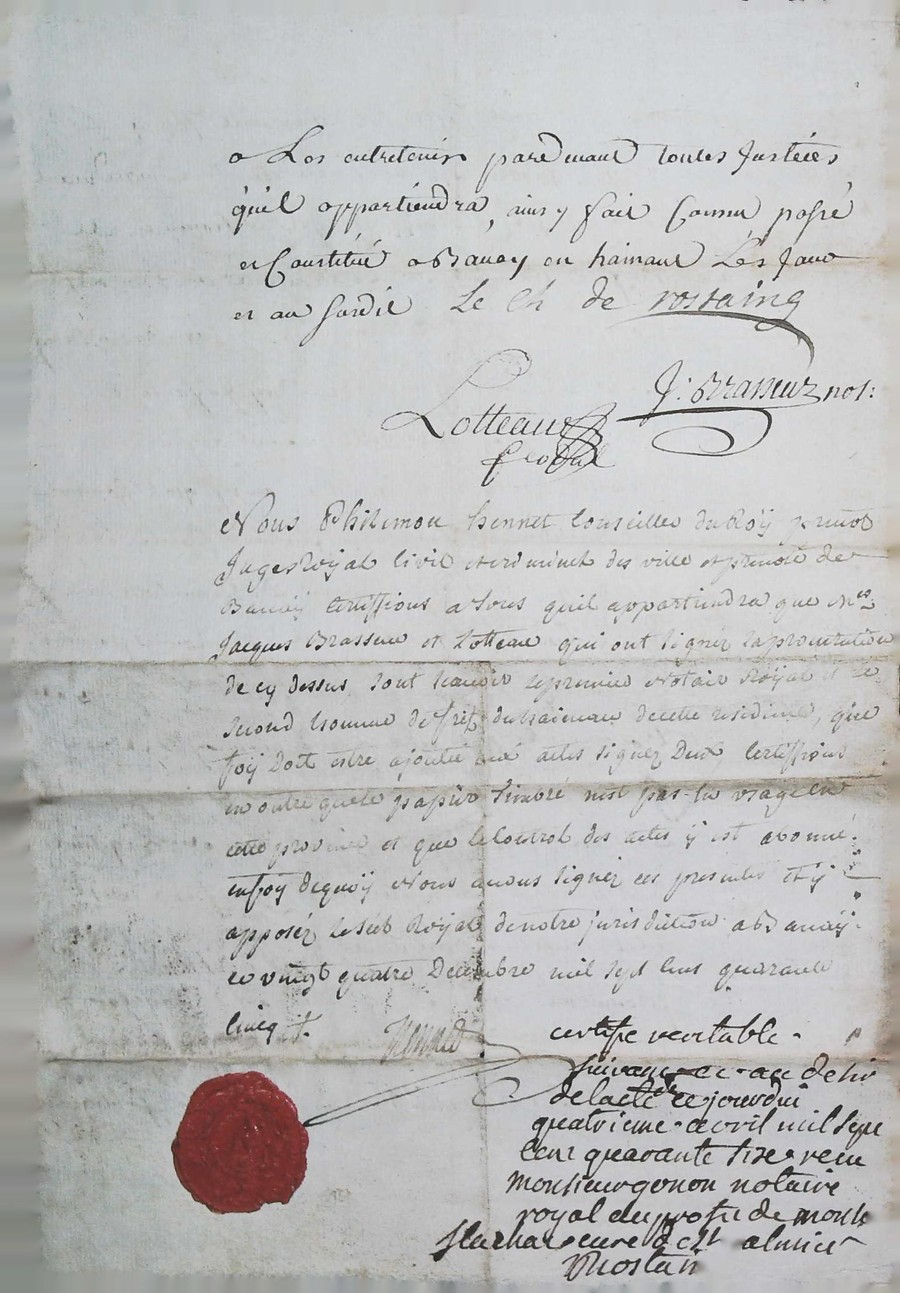 a Les entretenir pardevant toutes Justices
qu'il appartiendra, ainsy fait Connu passé
et Constitué a Bavay en hainaut Les Jour
et an susdit Le Ch de rostaing
J: Brasseur not:
Lotteau
Nous Philimon hennet Conseiller du Roÿ prevot
Juge Roÿal Civil et criminel des ville et prevoté de
Bavaÿ Certiffions a tous quil appartiendra que Mes
Jacques Brasseur et Lotteau qui ont signéz la procuration
de cy dessus sont scavoir le premier Notair Roÿal et le
second homme de fief du hainau de cette residence, que
foÿ Doit estre ajoutée aux actes signez Deux, Certiffions
en outre que le papier timbré nest pas en usage en
cette province et que le Control des actes ÿ est abonné.
en foÿ dequoÿ Nous avons signéz ces presentes et ÿ
apposéz le Scel Roÿal de notre jurisdiction a Bavaÿ
ce vingt quatre Decembre mil sept cens quarante
Cincq
hennet
certifie veritable
suivant et au desir
de lacte ce jourdui
quatrieme avril mil sept
cent quarante size recu
monsieur gonon notaire
royal au profit de mons
curé de st
Rostain